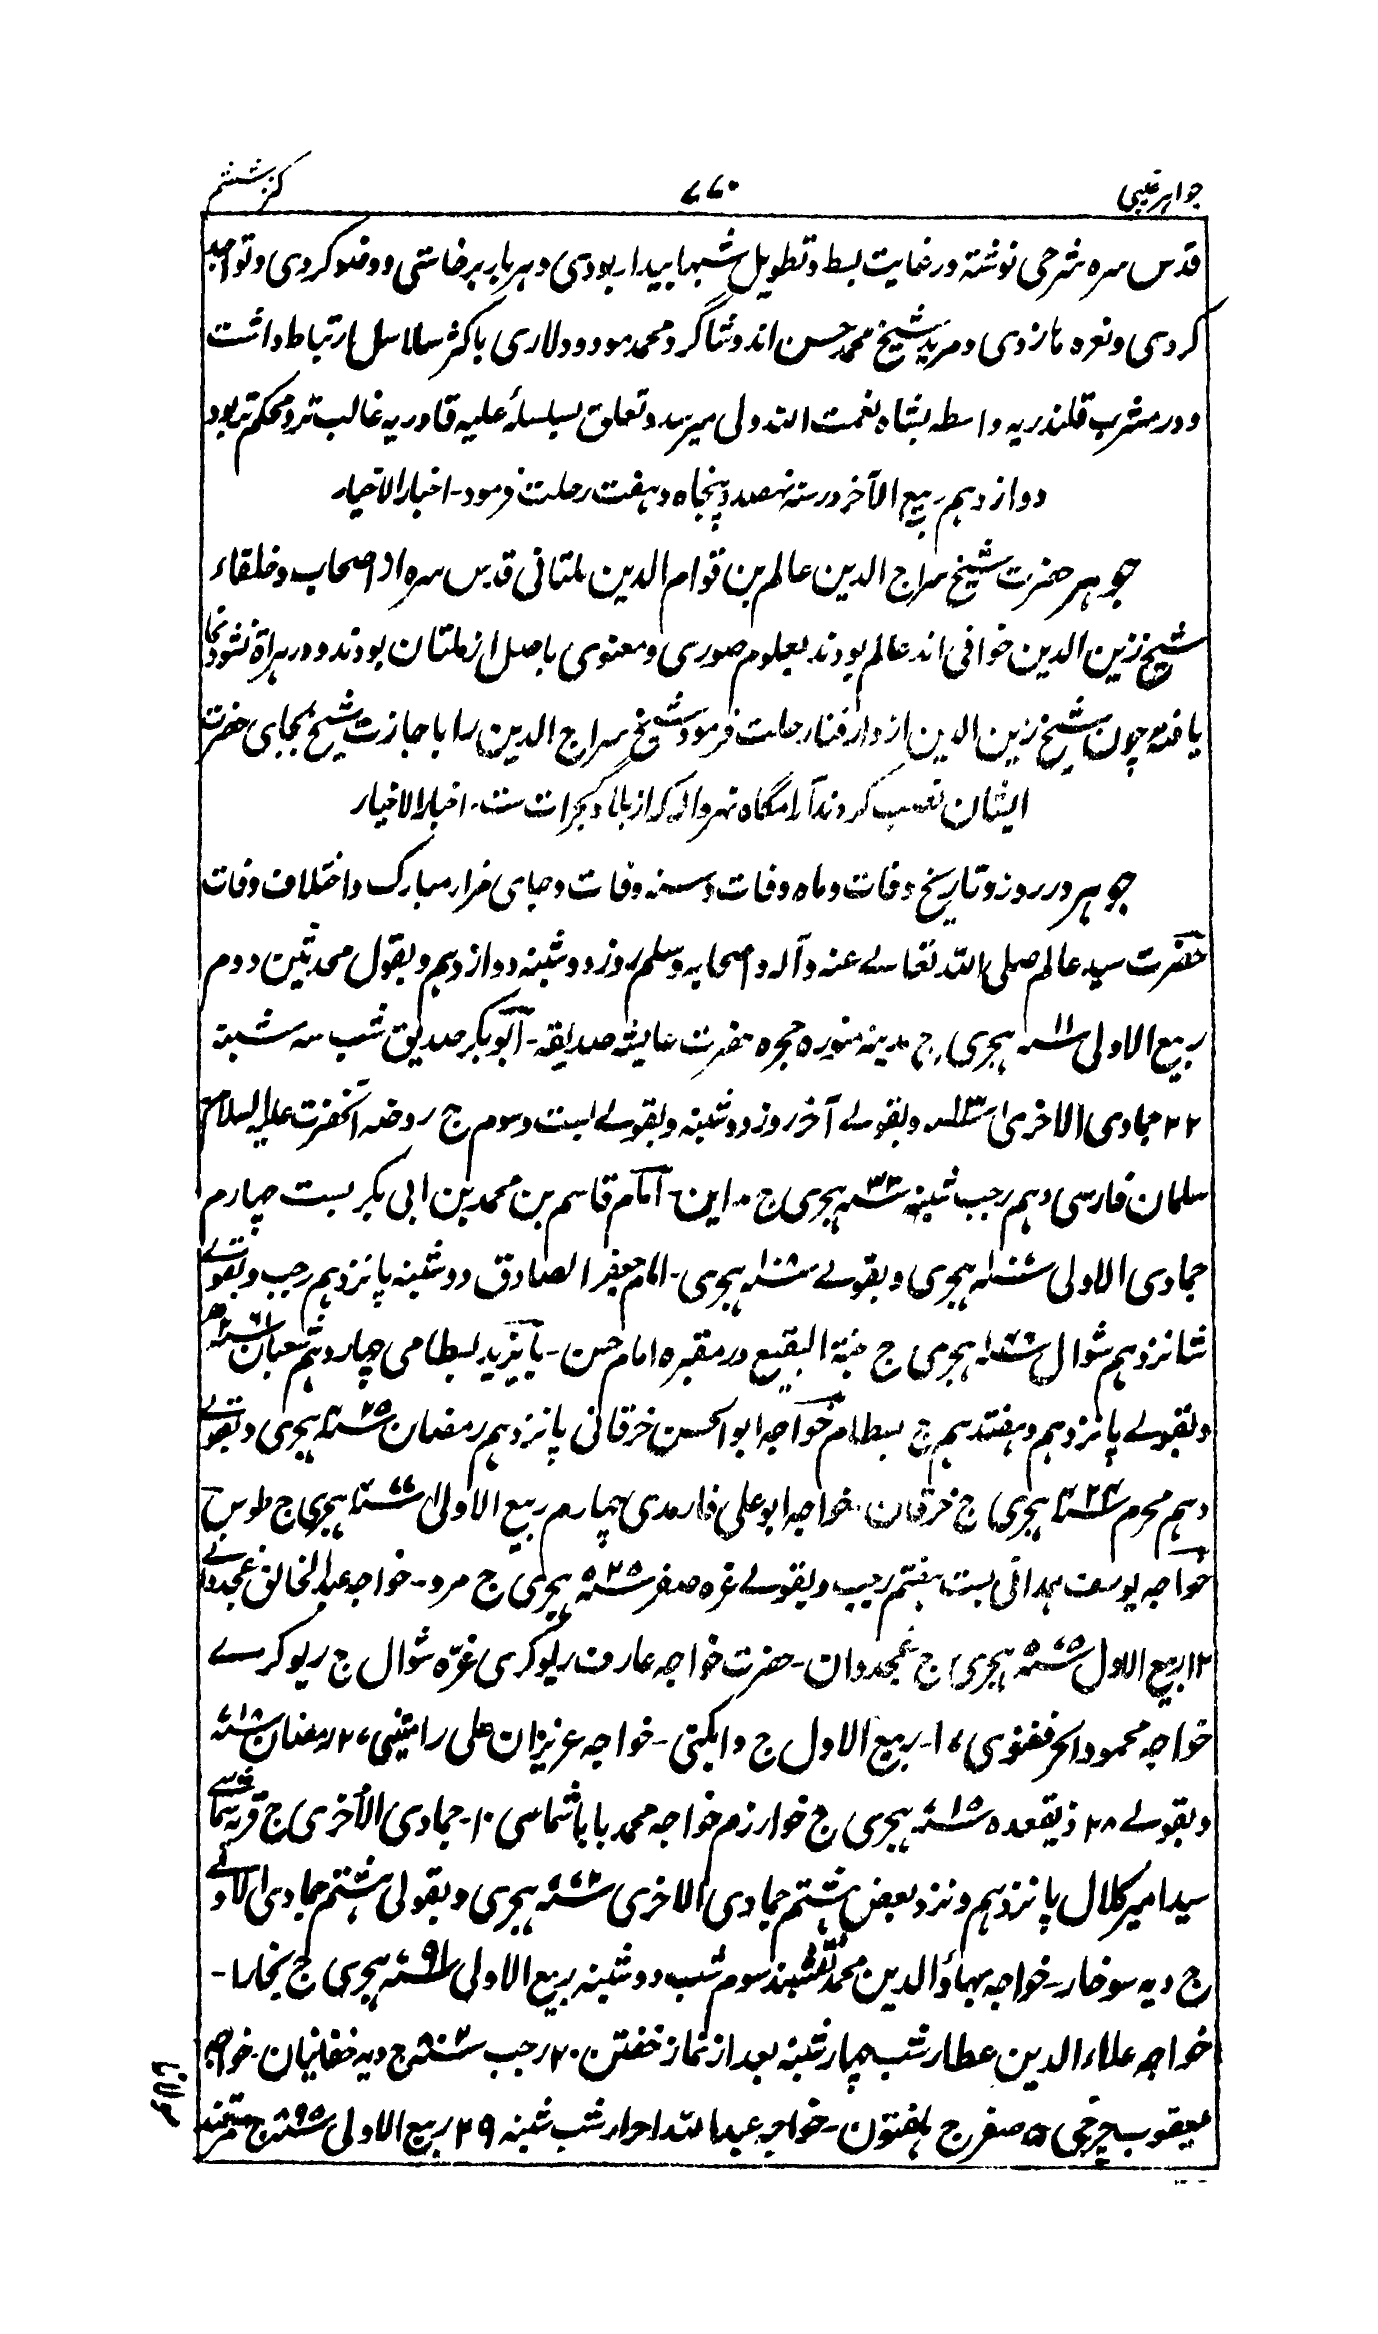 جواہر غیبی ۷۷۰ کنز ششم
قدس سره شرحی نوشته در غایت بسط و تطویل شبها بیدار بودی و هر بار برخاستی و وضو کردی و تواجد
کردی و نعره ها زدی و مرید شیخ محمد حسن اند و شاگرد محمد مودود لاری باکثر سلاسل ارتباط داشت
و در مشرب قلندریه واسطه بشاه نعمت الله ولی میرسد و تعلق بسلسلهٔ علیه قادریه غالب تر و محکم تر بود
دوازدهم ربیع الآخر در سنه نهصد و پنجاه و هفت رحلت فرمود۔ اخبار الاخیار
جوہر حضرت شیخ سراج الدین عالم بن قوام الدین ملتانی قدس سره از اصحاب و خلفاء
شیخ زین الدین خوافی اند عالم بودند بعلوم صوری و معنوی باصل از ملتان بودند و در هراة نشو و نما
یافته چون شیخ زین الدین از دار فنا رحلت فرمود شیخ سراج الدین را با جازت شیخ بجای حضرت
ایشان نصب کردند آرامگاه نهرواله که از بلاد گجرات ست۔ اخبار الاخیار
جوہر در روز و تاریخ وفات و ماه وفات و سنه وفات و جای مزار مبارک و اختلاف وفات
حضرت سید عالم صلی الله تعالے عنه و آله و اصحابه وسلم روز دوشنبه دوازدهم و بقول محدثین دوم
ربیع الاولی ۱۱سنه ہجری ج مدینه منوره حجره حضرت عایشه صدیقه۔ ابوبکر صدیق شب سه شنبه
۲۲ جمادی الاخری ۱۳سنه و بقولے آخر روز دوشنبه و بقولے بست و سوم ج روضه آنحضرت علیه السلام
سلمان فارسی دهم رجب شنبه ۳۳سنه ہجری ج مداین۔ امام قاسم بن محمد بن ابی بکر بست چهارم
جمادی الاولی سنه ہجری و بقولے ۱۰۸سنه ہجری۔ امام جعفر الصادق دوشنبه پانزدهم رجب و بقولے
شانزدهم شوال ۱۴۸سنه ہجری ج جنة البقیع در مقبره امام حسن۔ بایزید بسطامی چهاردهم شعبان ۲۶۱سنه ھ
و بقولے پانزدهم و هفتدهم ج بسطام خواجه ابوالحسن خرقانی پانزدهم رمضان ۴۲۵سنه ہجری و بقولے
دهم محرم ۴۲۴سنه ہجری ج خرقان۔ خواجه ابوعلی فارمدی چهارم ربیع الاولی ۴۷۷سنه ہجری ج طوس
خواجه یوسف همدانی بست هفتم رجب و بقولے غره صفر ۵۳۵سنه ہجری ج مرو۔ خواجه عبدالخالق غجدوانے
۱۲ ربیع الاول ۵۷۵سنه ہجری ج غجدوان۔ حضرت خواجه عارف ریوگری غرّه شوال ج ریوگرے
خواجه محمود انجیر فغنوی ۱۷۔ ربیع الاول ج وابکنی۔ خواجه عزیزان علی رامیتنی ۲۷ رمضان ۷۱۸سنه
و بقولے ۲۸ ذیقعده ۷۱۵سنه ہجری ج خوارزم خواجه محمد بابا شماسی ۱۰۔ جمادی الأخری ج قریه سماسے
سید امیر کلال پانزدهم و نزد بعض هشتم جمادی الاخری ۷۷۲سنه ہجری و بقولی هشتم جمادی الاولے
ج دیه سوخار۔ خواجه بهاؤالدین محمد نقشبند سوم شب دوشنبه ربیع الاولی ۷۹۱سنه ہجری ج بخارا۔
خواجه علاء الدین عطار شب چهارشنبه بعد از نماز خفتن ۲۰ رجب ۸۰۲سنه ج دیه جغانیان۔ خواجه
یعقوب چرخی ۵ صفر ج هلفتون۔ خواجه عبدالله احرار شب شنبه ۲۹ ربیع الاولی ۸۹۵سنه ج سمرقند
مولانا